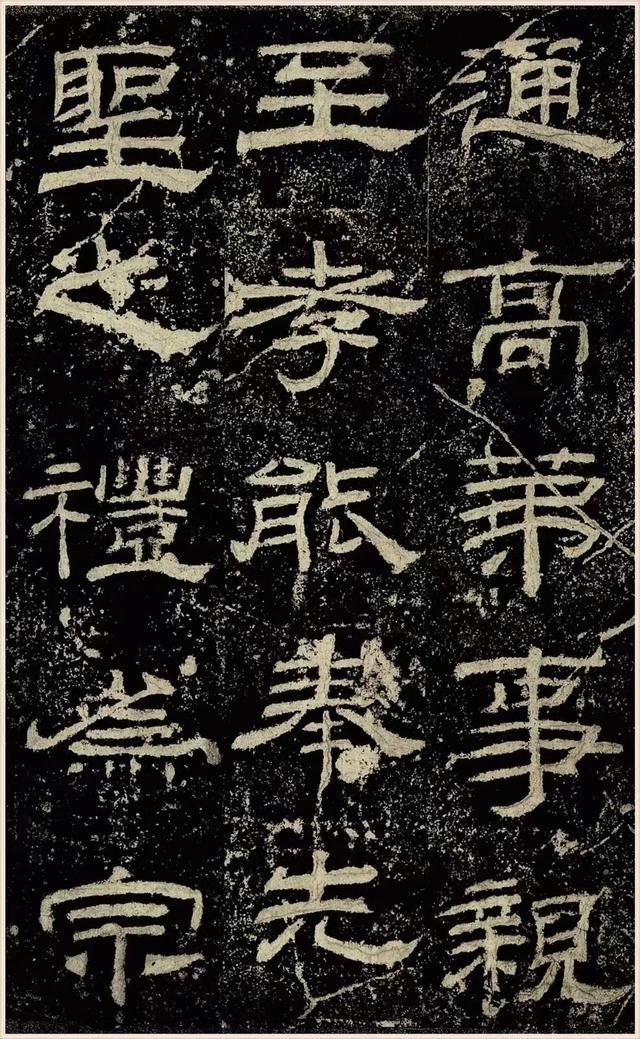 通高第事親
至孝能奉先
聖之禮爲宗